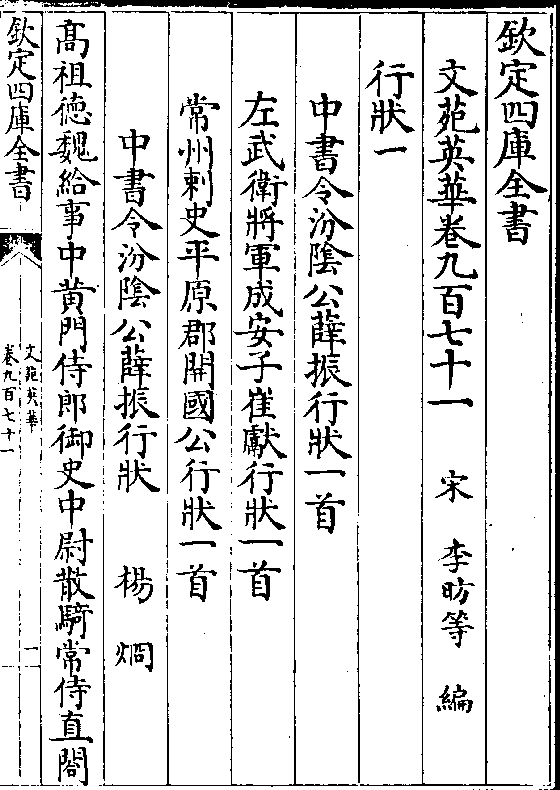 欽定四庫全書
文苑英華卷九百七十一 宋 李昉等 編
行狀一
中書令汾陰公薛振行狀一首
左武衛將軍成安子崔獻行狀一首
常州刺史平原郡開國公行狀一首
中書令汾陰公薛振行狀 楊炯
髙祖德魏給事中黄門侍郎御史中尉散騎常侍直閤
欽定四庫全書
文苑英華
卷九百七十一
一